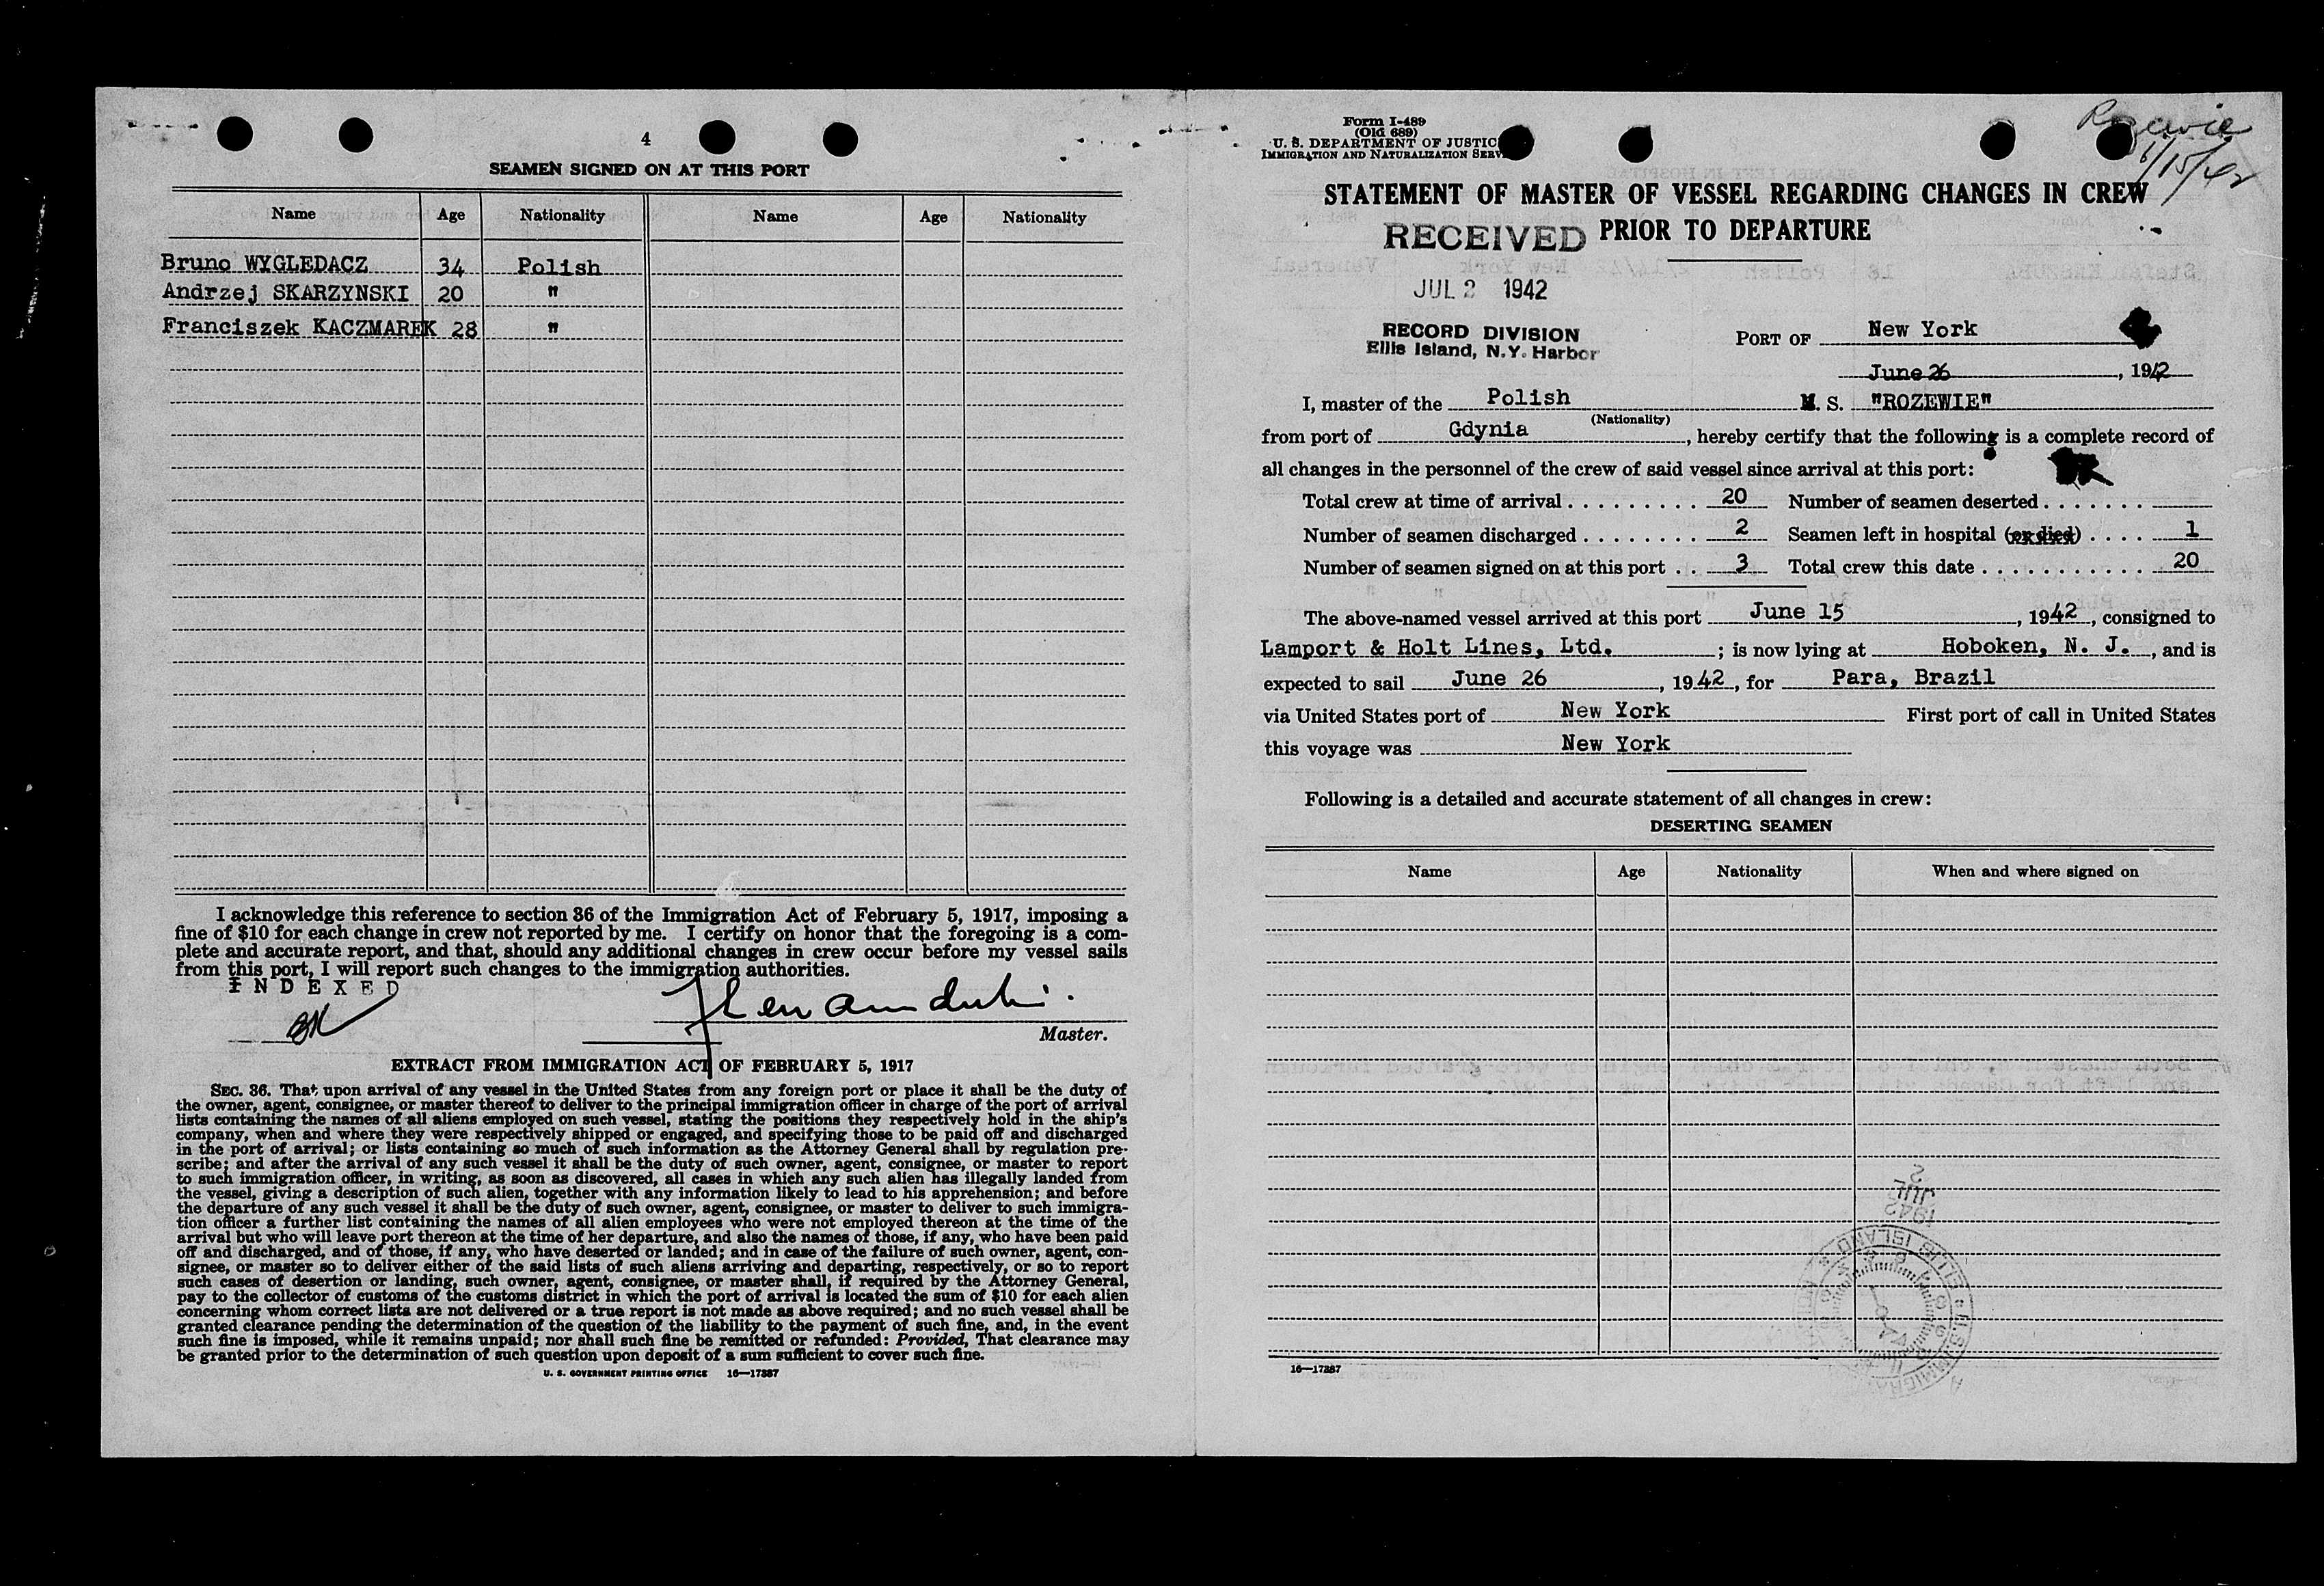 4
SEAMEN SIGNED ON AT THIS PORT
Name Age Nationality Name Age Nationality
Bruno WYGLEDACZ 34 Polish
Andrzej SKARZYNSKI 20 "
Franciszek KACZMAREK 28 "
I acknowledge this reference to section 36 of the Immigration Act of February 5, 1917, imposing a
fine of $10 for each change in crew not reported by me. I certify on honor that the foregoing is a com-
plete and accurate report, and that, should any additional changes in crew occur before my vessel sails
from this port, I will report such changes to the immigration authorities.
INDEXED
Master.
EXTRACT FROM IMMIGRATION ACT OF FEBRUARY 5, 1917
SEC. 36. That upon arrival of any vessel in the United States from any foreign port or place it shall be the duty of
the owner, agent, consignee, or master thereof to deliver to the principal immigration officer in charge of the port of arrival
lists containing the names of all aliens employed on such vessel, stating the positions they respectively hold in the ship's
company, when and where they were respectively shipped or engaged, and specifying those to be paid off and discharged
in the port of arrival; or lists containing so much of such information as the Attorney General shall by regulation pre-
scribe; and after the arrival of any such vessel it shall be the duty of such owner, agent, consignee, or master to report
to such immigration officer, in writing, as soon as discovered, all cases in which any such alien has illegally landed from
the vessel, giving a description of such alien, together with any information likely to lead to his apprehension; and before
the departure of any such vessel it shall be the duty of such owner, agent, consignee, or master to deliver to such immigra-
tion officer a further list containing the names of all alien employees who were not employed thereon at the time of the
arrival but who will leave port thereon at the time of her departure, and also the names of those, if any, who have been paid
off and discharged, and of those, if any, who have deserted or landed; and in case of the failure of such owner, agent, con-
signee, or master so to deliver either of the said lists of such aliens arriving and departing, respectively, or so to report
such cases of desertion or landing, such owner, agent, consignee, or master shall, if required by the Attorney General,
pay to the collector of customs of the customs district in which the port of arrival is located the sum of $10 for each alien
concerning whom correct lists are not delivered or a true report is not made as above required; and no such vessel shall be
granted clearance pending the determination of the question of the liability to the payment of such fine, and, in the event
such fine is imposed, while it remains unpaid; nor shall such fine be remitted or refunded: Provided, That clearance may
be granted prior to the determination of such question upon deposit of a sum sufficient to cover such fine.
U. S. GOVERNMENT PRINTING OFFICE 16—17387
Form I-489
(Old 689)
U. S. DEPARTMENT OF JUSTIC
IMMIGRATION AND NATURALIZATION SERV
Rozewie
6/15/42
STATEMENT OF MASTER OF VESSEL REGARDING CHANGES IN CREW
PRIOR TO DEPARTURE
RECEIVED
JUL 2 1942
RECORD DIVISION
Ellis Island, N.Y. Harbor
PORT OF New York
June 26, 1942
I, master of the Polish M. S. "ROZEWIE"
(Nationality)
from port of Gdynia, hereby certify that the following is a complete record of
all changes in the personnel of the crew of said vessel since arrival at this port:
Total crew at time of arrival 20 Number of seamen deserted
Number of seamen discharged 2 Seamen left in hospital (or died) 1
Number of seamen signed on at this port 3 Total crew this date 20
The above-named vessel arrived at this port June 15, 1942, consigned to
Lamport & Holt Lines, Ltd.; is now lying at Hoboken, N. J., and is
expected to sail June 26, 1942, for Para, Brazil
via United States port of New York First port of call in United States
this voyage was New York
Following is a detailed and accurate statement of all changes in crew:
DESERTING SEAMEN
Name Age Nationality When and where signed on
16—17387